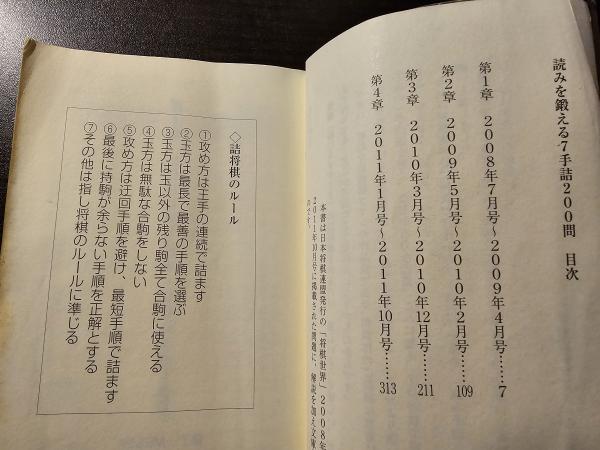 読みを鍛える7手詰200問　目次
第1章　2008年7月号～2009年4月号……7
第2章　2009年5月号～2010年2月号……109
第3章　2010年3月号～2010年12月号……211
第4章　2011年1月号～2011年10月号……313
本書は日本将棋連盟発行の「将棋世界」2008年
2011年10月号に掲載された問題に、解説を加え文庫
のです。
◇詰将棋のルール
①攻め方は王手の連続で詰ます
②玉方は最長で最善の手順を選ぶ
③玉方は玉以外の残り駒全て合駒に使える
④玉方は無駄な合駒をしない
⑤攻め方は迂回手順を避け、最短手順で詰ます
⑥最後に持駒が余らない手順を正解とする
⑦その他は指し将棋のルールに準じる